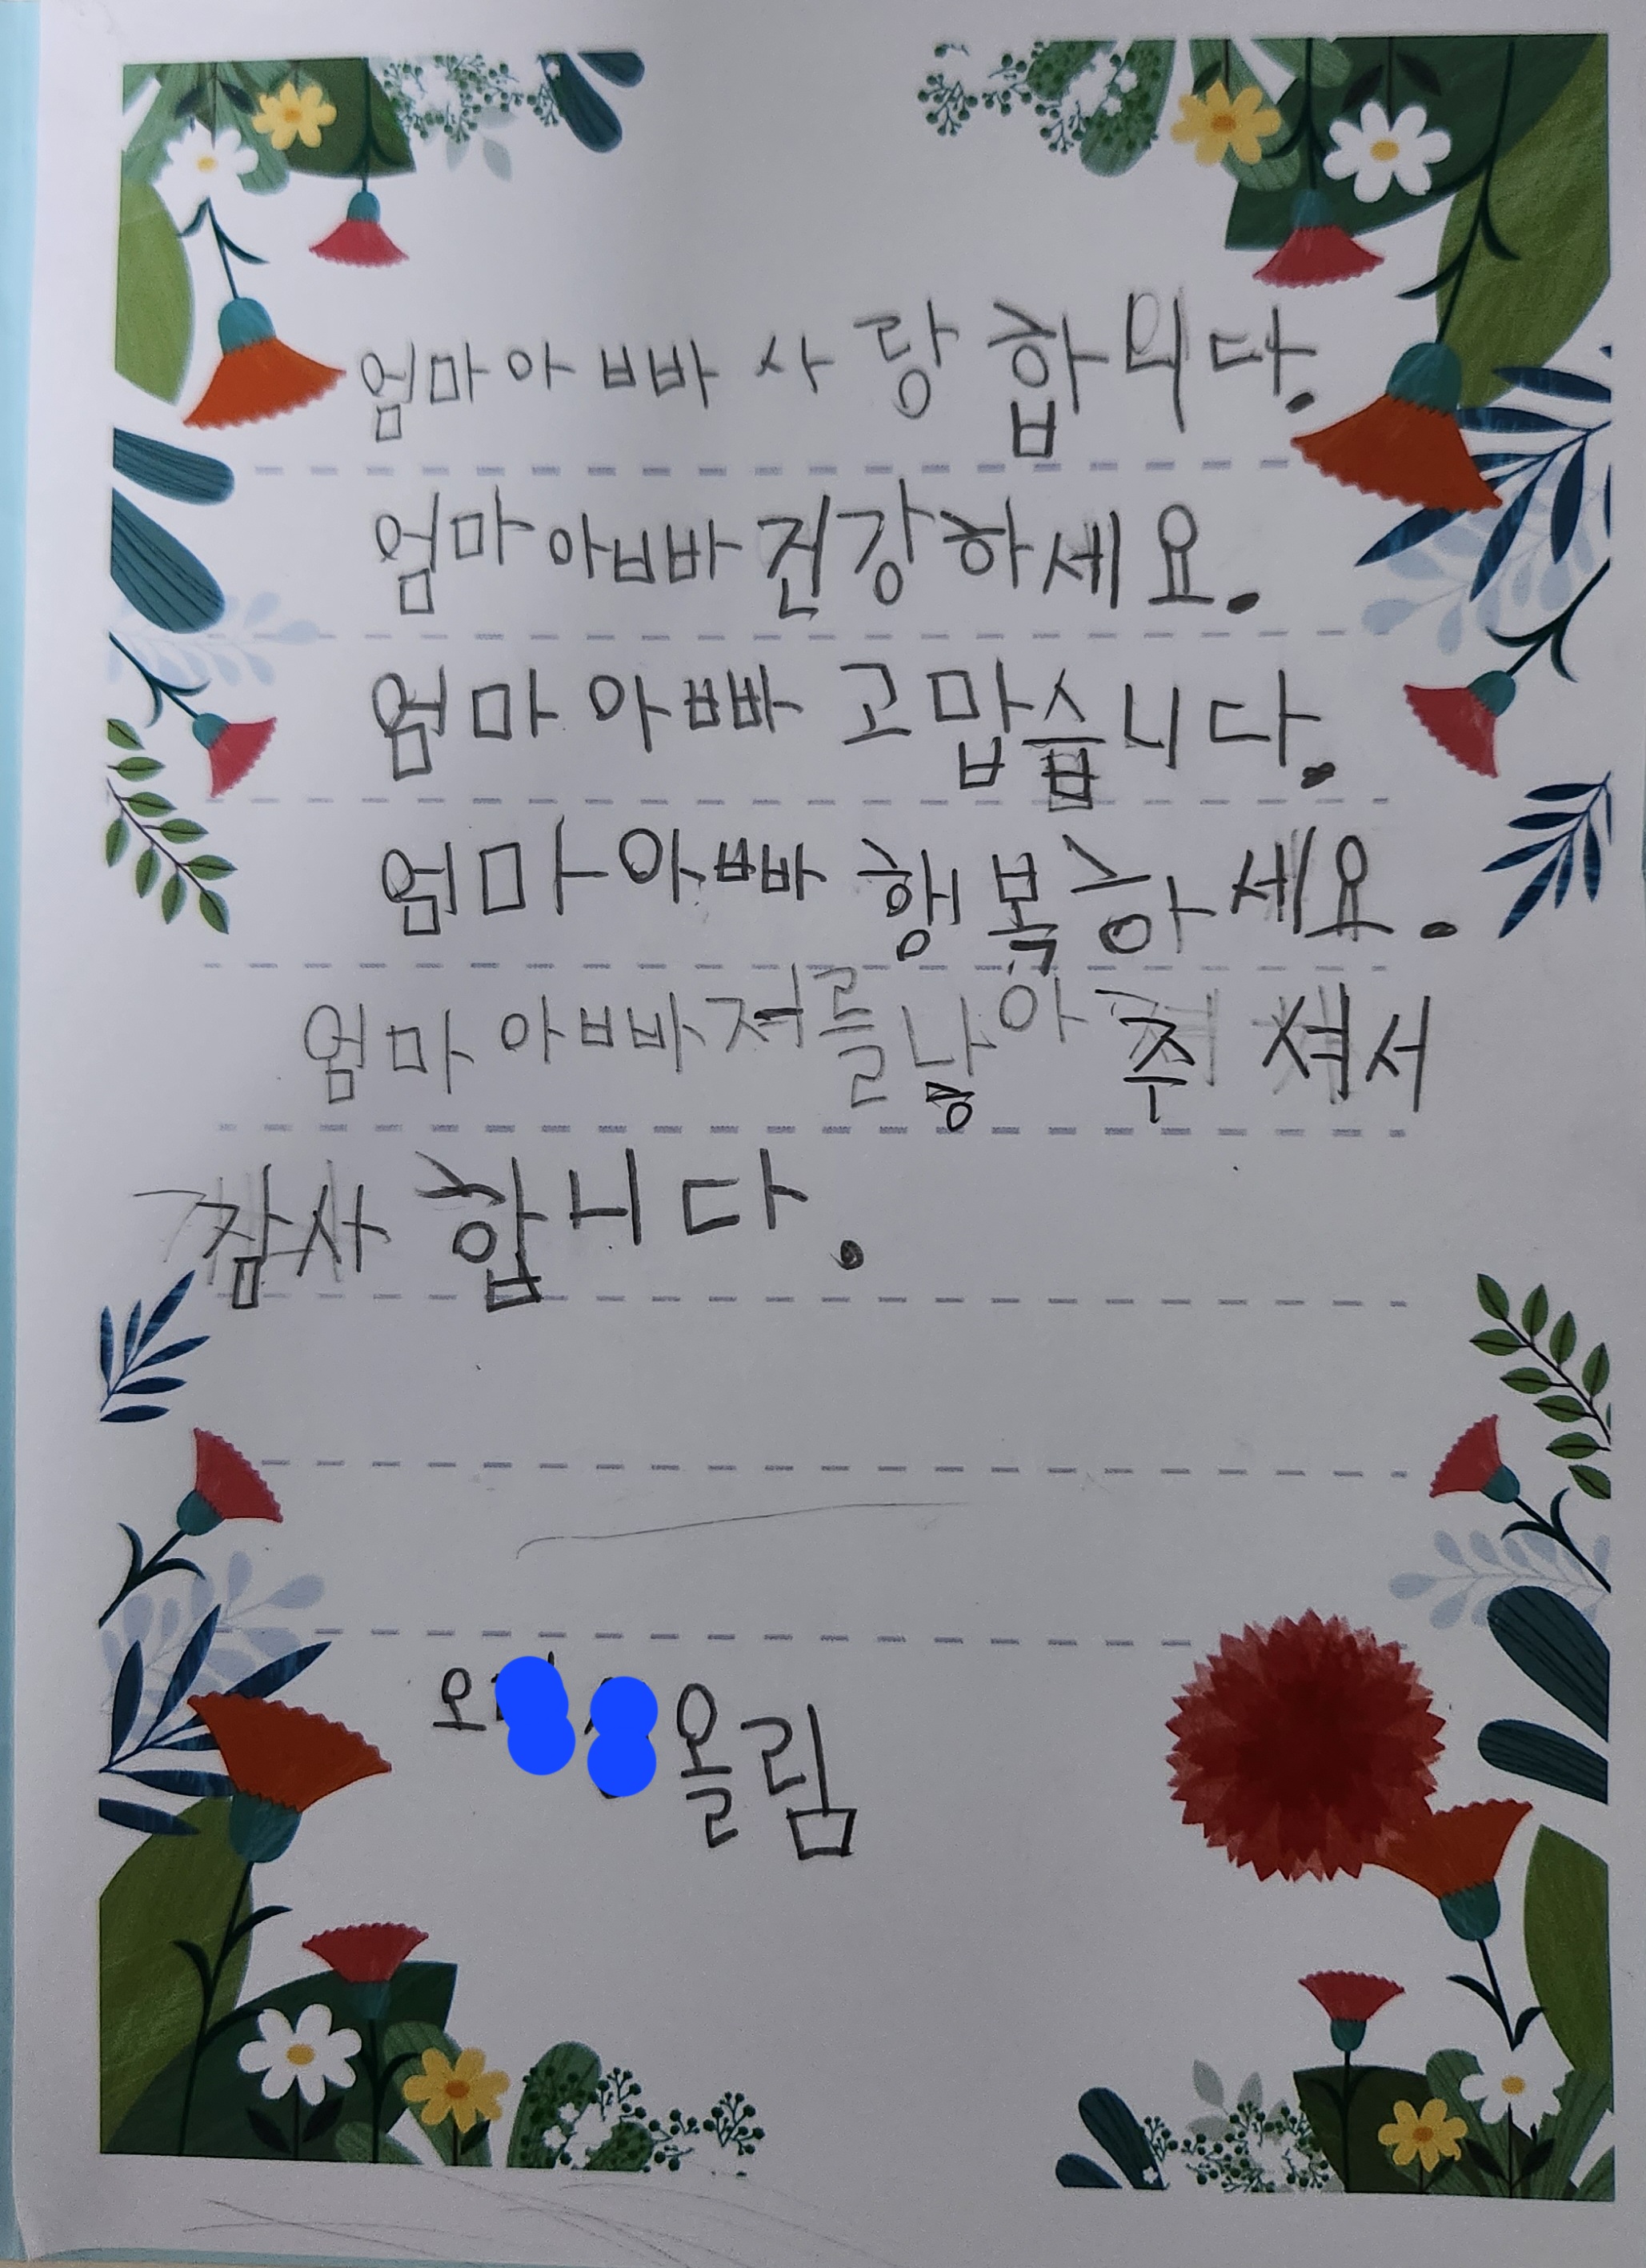 엄마아빠 사랑합니다.
엄마아빠건강하세요.
엄마아빠 고맙습니다.
엄마아빠 행복하세요.
엄마아빠저를낳아 주셔서
감사합니다.
오 올림